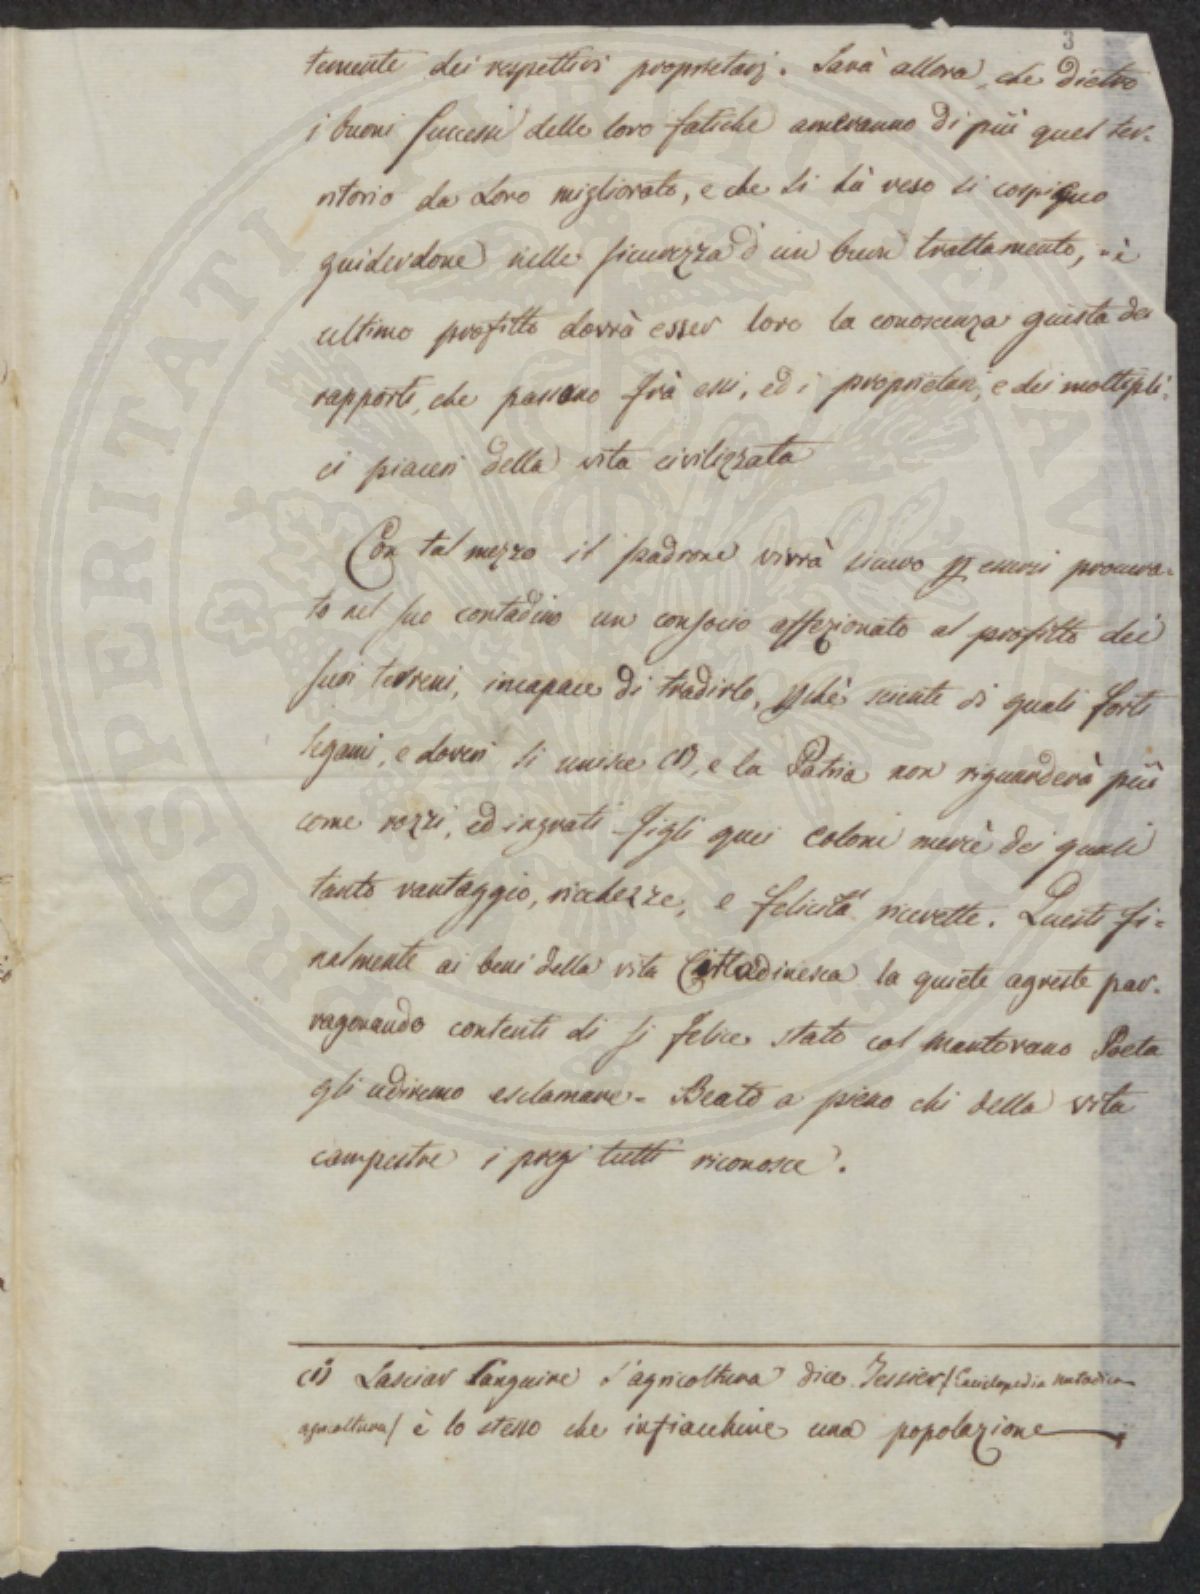 3
temente dei respettivi proprietarj. Sarà allora, che dietro
i buoni successi delle loro fatiche ameranno di più quel ter-
ritorio da Loro migliorato, e che li hà reso sì cospicuo
guiderdone nelle sicurezza d'un buon trattamento, è
ultimo profitto dovrà esser loro la conoscenza giusta dei
rapporti, che passano frà essi, ed i proprietari, e dei moltipli-
ci piaceri della vita civilizzata
Con tal mezzo il padrone vivrà sicuro p essersi procura-
to nel suo contadino un consocio affezionato al profitto dei
suoi terreni, incapace di tradirlo, pchè sciente di quali forti
legami, e doveri si unisce (1), e la Patria non riguarderà più
come rozzi, ed ingrati figli quei coloni mercè dei quali
tanto vantaggio, ricchezze, e felicità ricevette. Questi fi-
nalmente ai beni della vita Cittadinesca la quiete agreste par-
ragonando contenti di sì felice stato col Mantovano Poeta
gli udiremo esclamare - Beato a pieno chi della vita
campestre i pregi tutti riconosce.
(1) Lasciar languire l'agricoltura dice Tessier / Enciclopedia metodica
agricoltura / è lo stesso che infiacchire una popolazione
PROSPERITATI PUBLICAE AUGENDAE